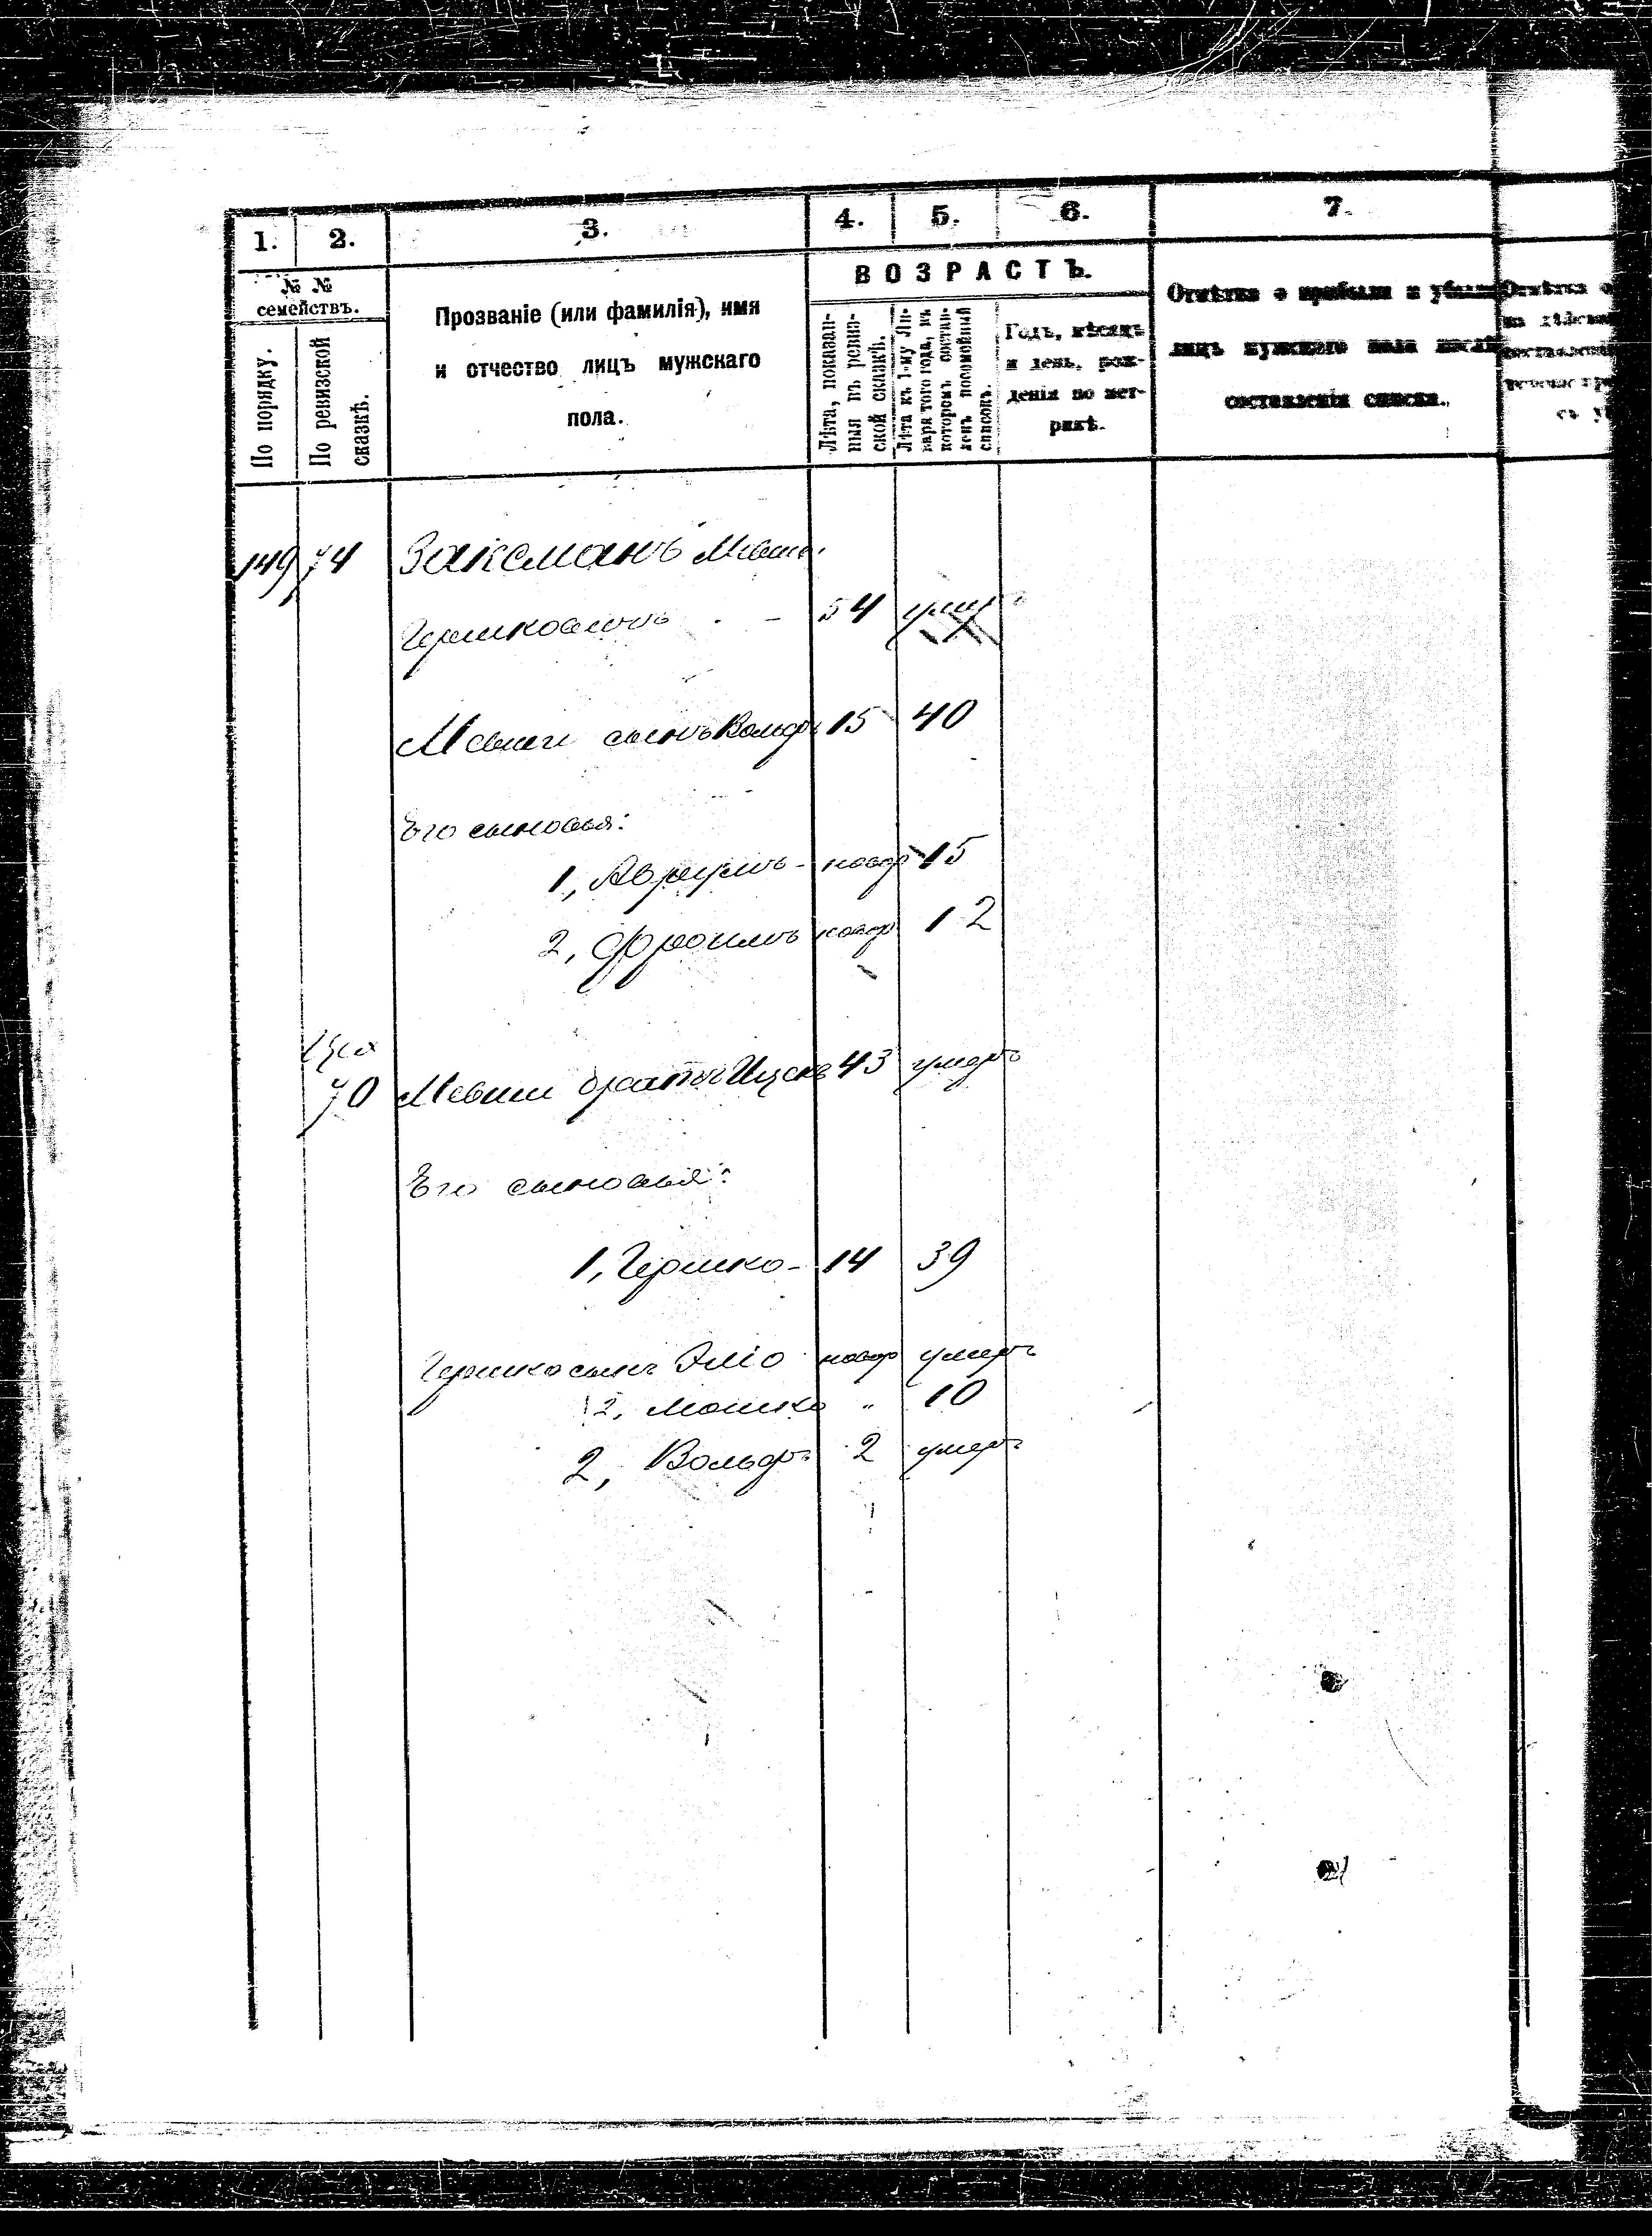 1. 2. 3. 4. 5. 6. 7.
№ № семействъ.
По порядку.
По ревизской сказкѣ.
Прозваніе (или фамилія), имя
и отчество лицъ мужскаго
пола.
ВОЗРАСТЪ.
Лѣта, показан-
ныя въ ревиз-
ской сказкѣ.
Лѣта къ 1-му Ян-
варя того года, въ
которомъ состав-
ленъ посемейный
списокъ.
Годъ, мѣсяцъ
и день, рож-
денія по мет-
рикѣ.
Отмѣтка о прибыли и убыли
лицъ мужскаго пола послѣ
составленія списка.
149 74 Заксманъ Мевши
Гершковичъ - 54
Мевши сынъ Вольфъ 15 40
Его сыновья:
1, Аврумъ - новор 15
2, Фроимъ новор 12
70 Мевши братъ Ицекъ 43 умеръ
Его сыновья:
1, Гершко - 14 39
Гершко сынъ Эліо новор умеръ
2, Мошко " 10
2, Вольфъ 2 умеръ